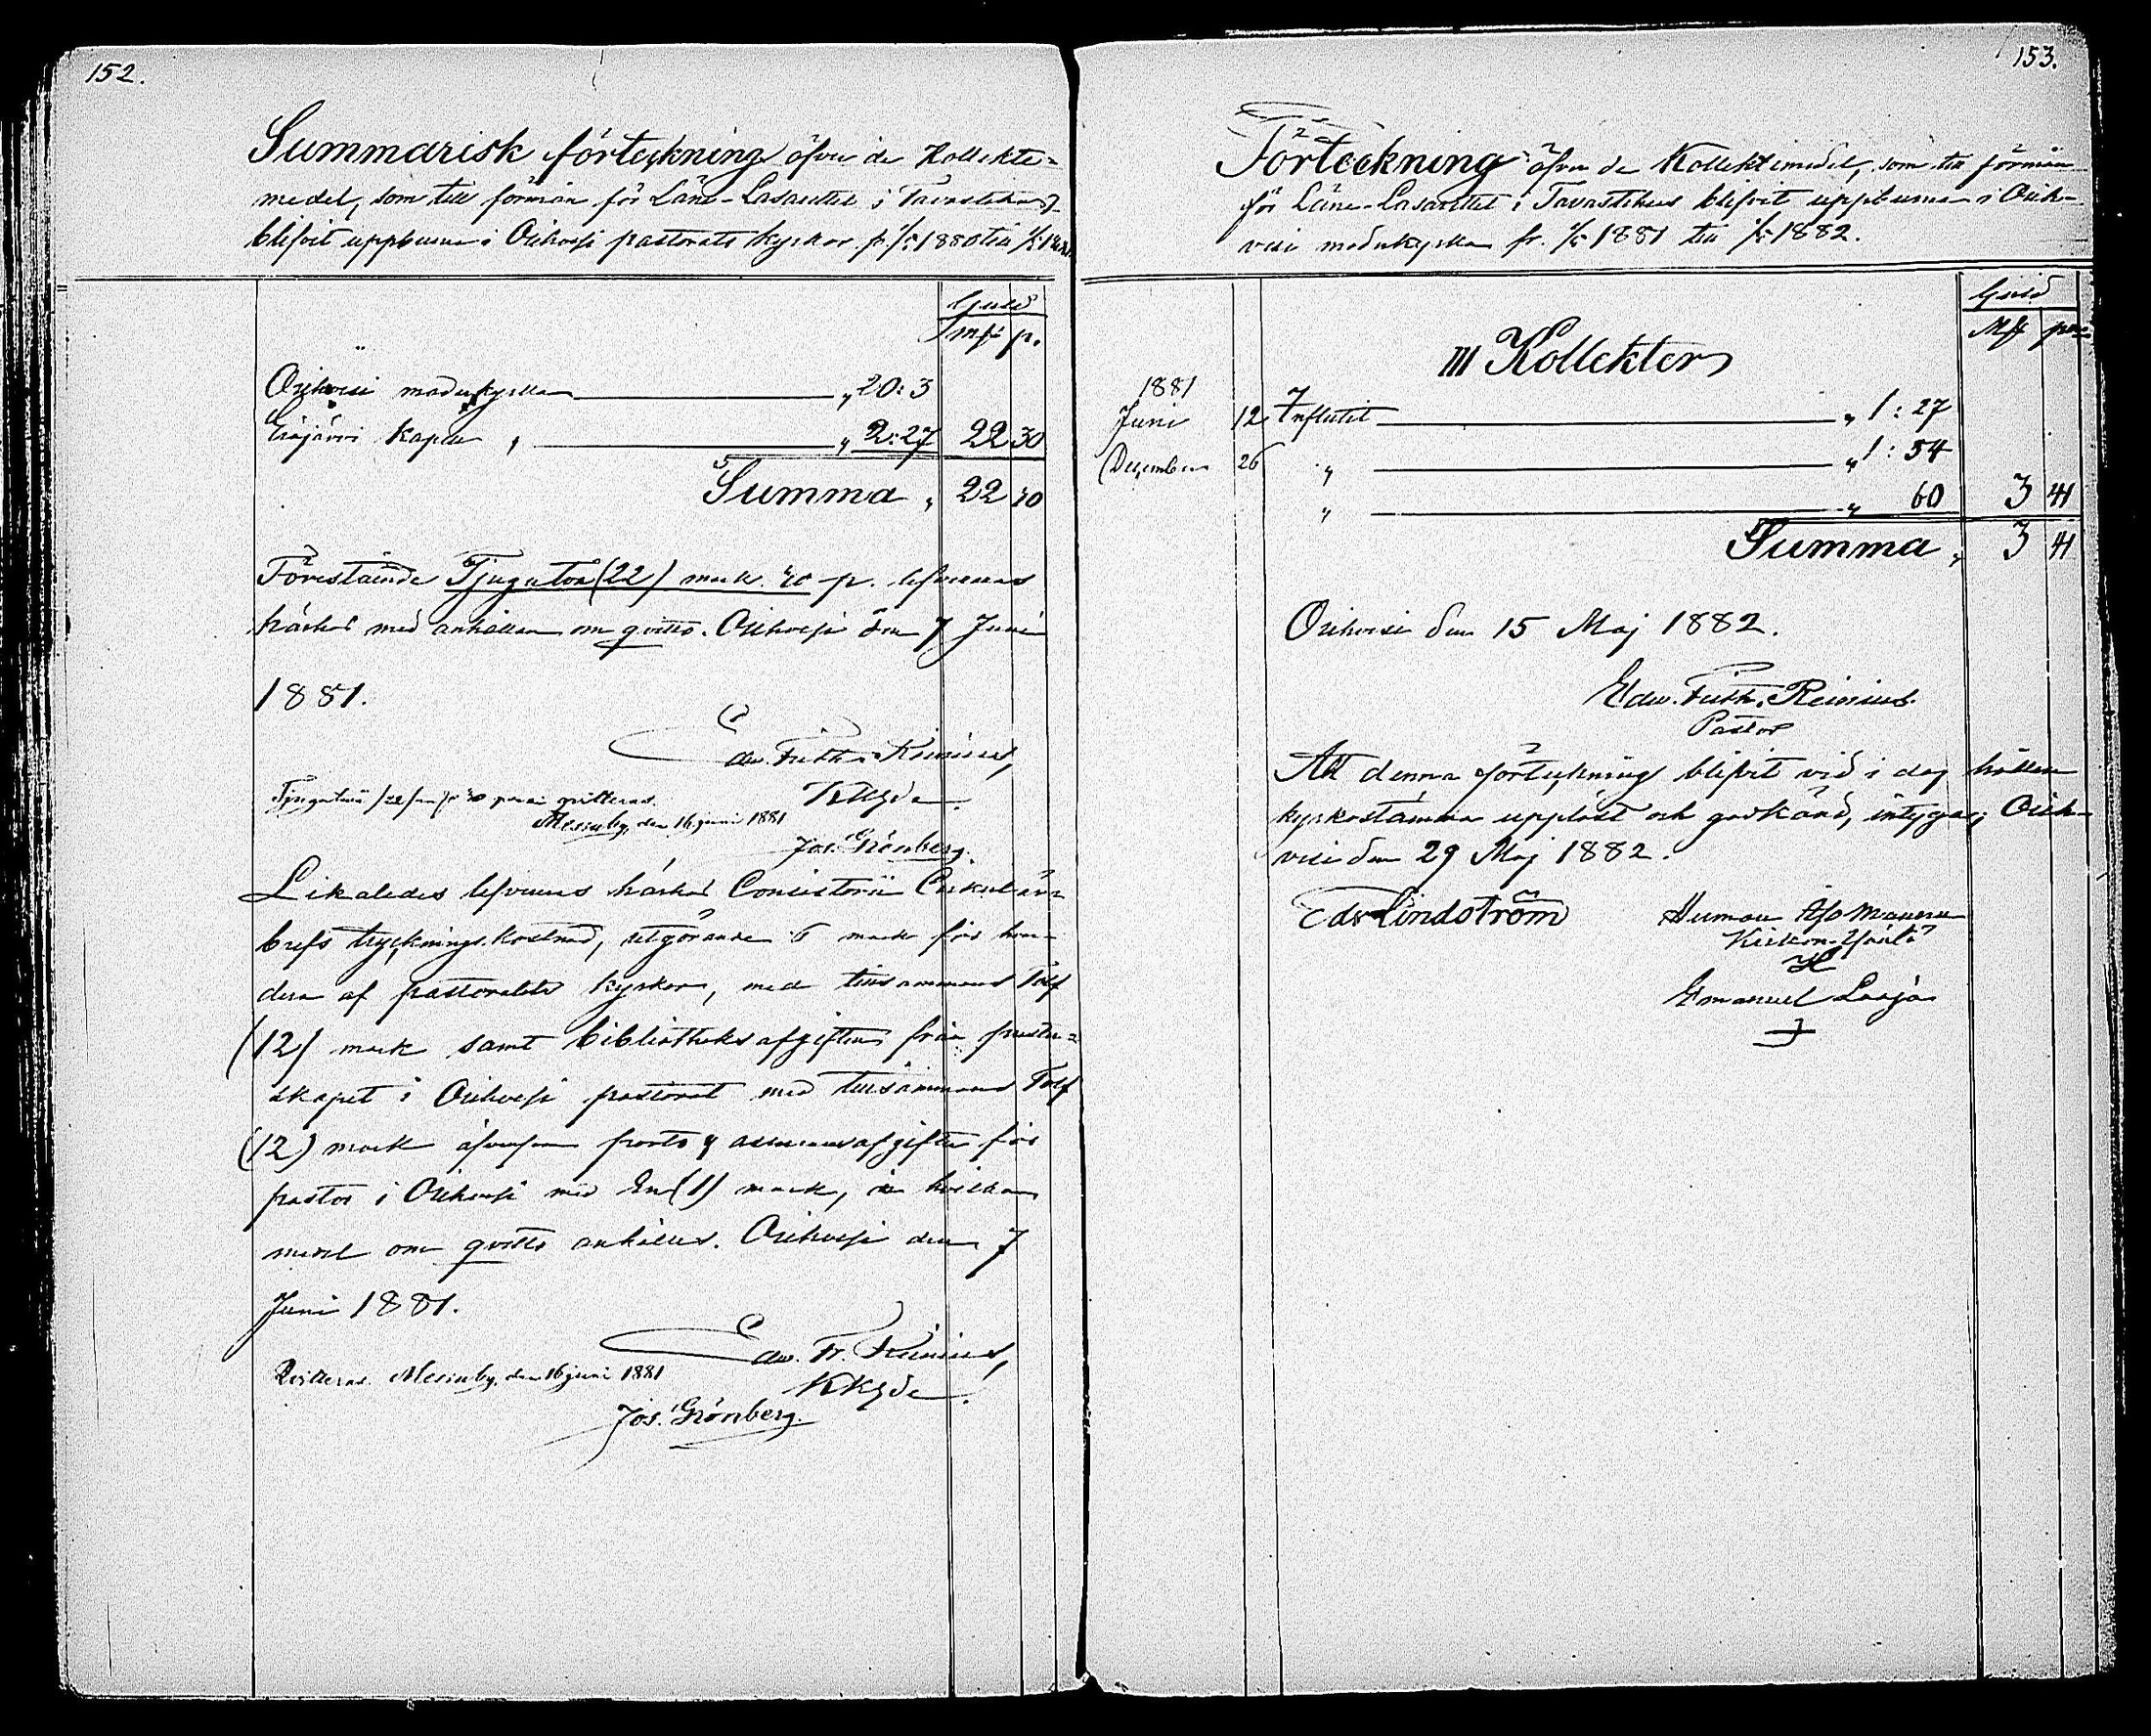 152.
Summarisk förteckning öfver de Kollekte-
medel, som till förmån för Läns-Lasarettet i Tavastehus
blifvit uppburna i Orihvesi pastorats kyrkor fr. 1/5 1880 till 1/5 1881.
Guld
Mf p.
Orihvesi moderkyrka „ 20: 3
Eräjärvi Kapell „ „ 2: 27 22 30
Summa „ 22 30
Förestående Tjugutvå (22) mark 30 p. lefvereras
härhos med anhållan om qvitto. Orihvesi den 7 Juni
1881.
Edv. Fredr. Reinius,
KKhde
Tjugutvå /22/ mf 30 penni qvitteras.
Messuby, den 16 juni 1881
Jos. Grönberg.
Likaledes lefvereras härhos Consistorii Cirkulär-
brefs tryckningskostnad, utgörande 6 mark för hvar-
dera af pastoratets kyrkor, med tillsammans Tolf
(12) mark samt bibliotheksafgiften från prester-
skapet i Orihvesi pastorat med tillsammans Tolf
(12) mark äfvensom porto & afgifter för
pastor i Orihvesi med En (1) mark, hvilka
medel om qvitto anhålles. Orihvesi den 7
Juni 1881.
Edv. Fr. Reinius,
KKhde
Qvitteras. Messuby, den 16 juni 1881
Jos. Grönberg.
153.
Förteckning öfver de Kollektmedel, som till förmån
för Läne-Lasarettet i Tavastehus blifvit uppburna i Orih-
vesi moderkyrka fr. 1/5 1881 till 1/5 1882.
Guld
Mf pni
III Kollekter
1881
Juni 12 Influtit „ 1: 27
December 26 „ „ 1: 54
„ „ 60 3 41
Summa „ 3 41
Orihvesi den 15 Maj 1882.
Edv. Fredr. Reinius.
Pastor
Att denna förteckning blifvit vid i dag hållen
kyrkostämma uppläst och godkänd, intygas; Orih-
vesi den 29 Maj 1882.
Edv Lindström Herman
Emanuel Laaja